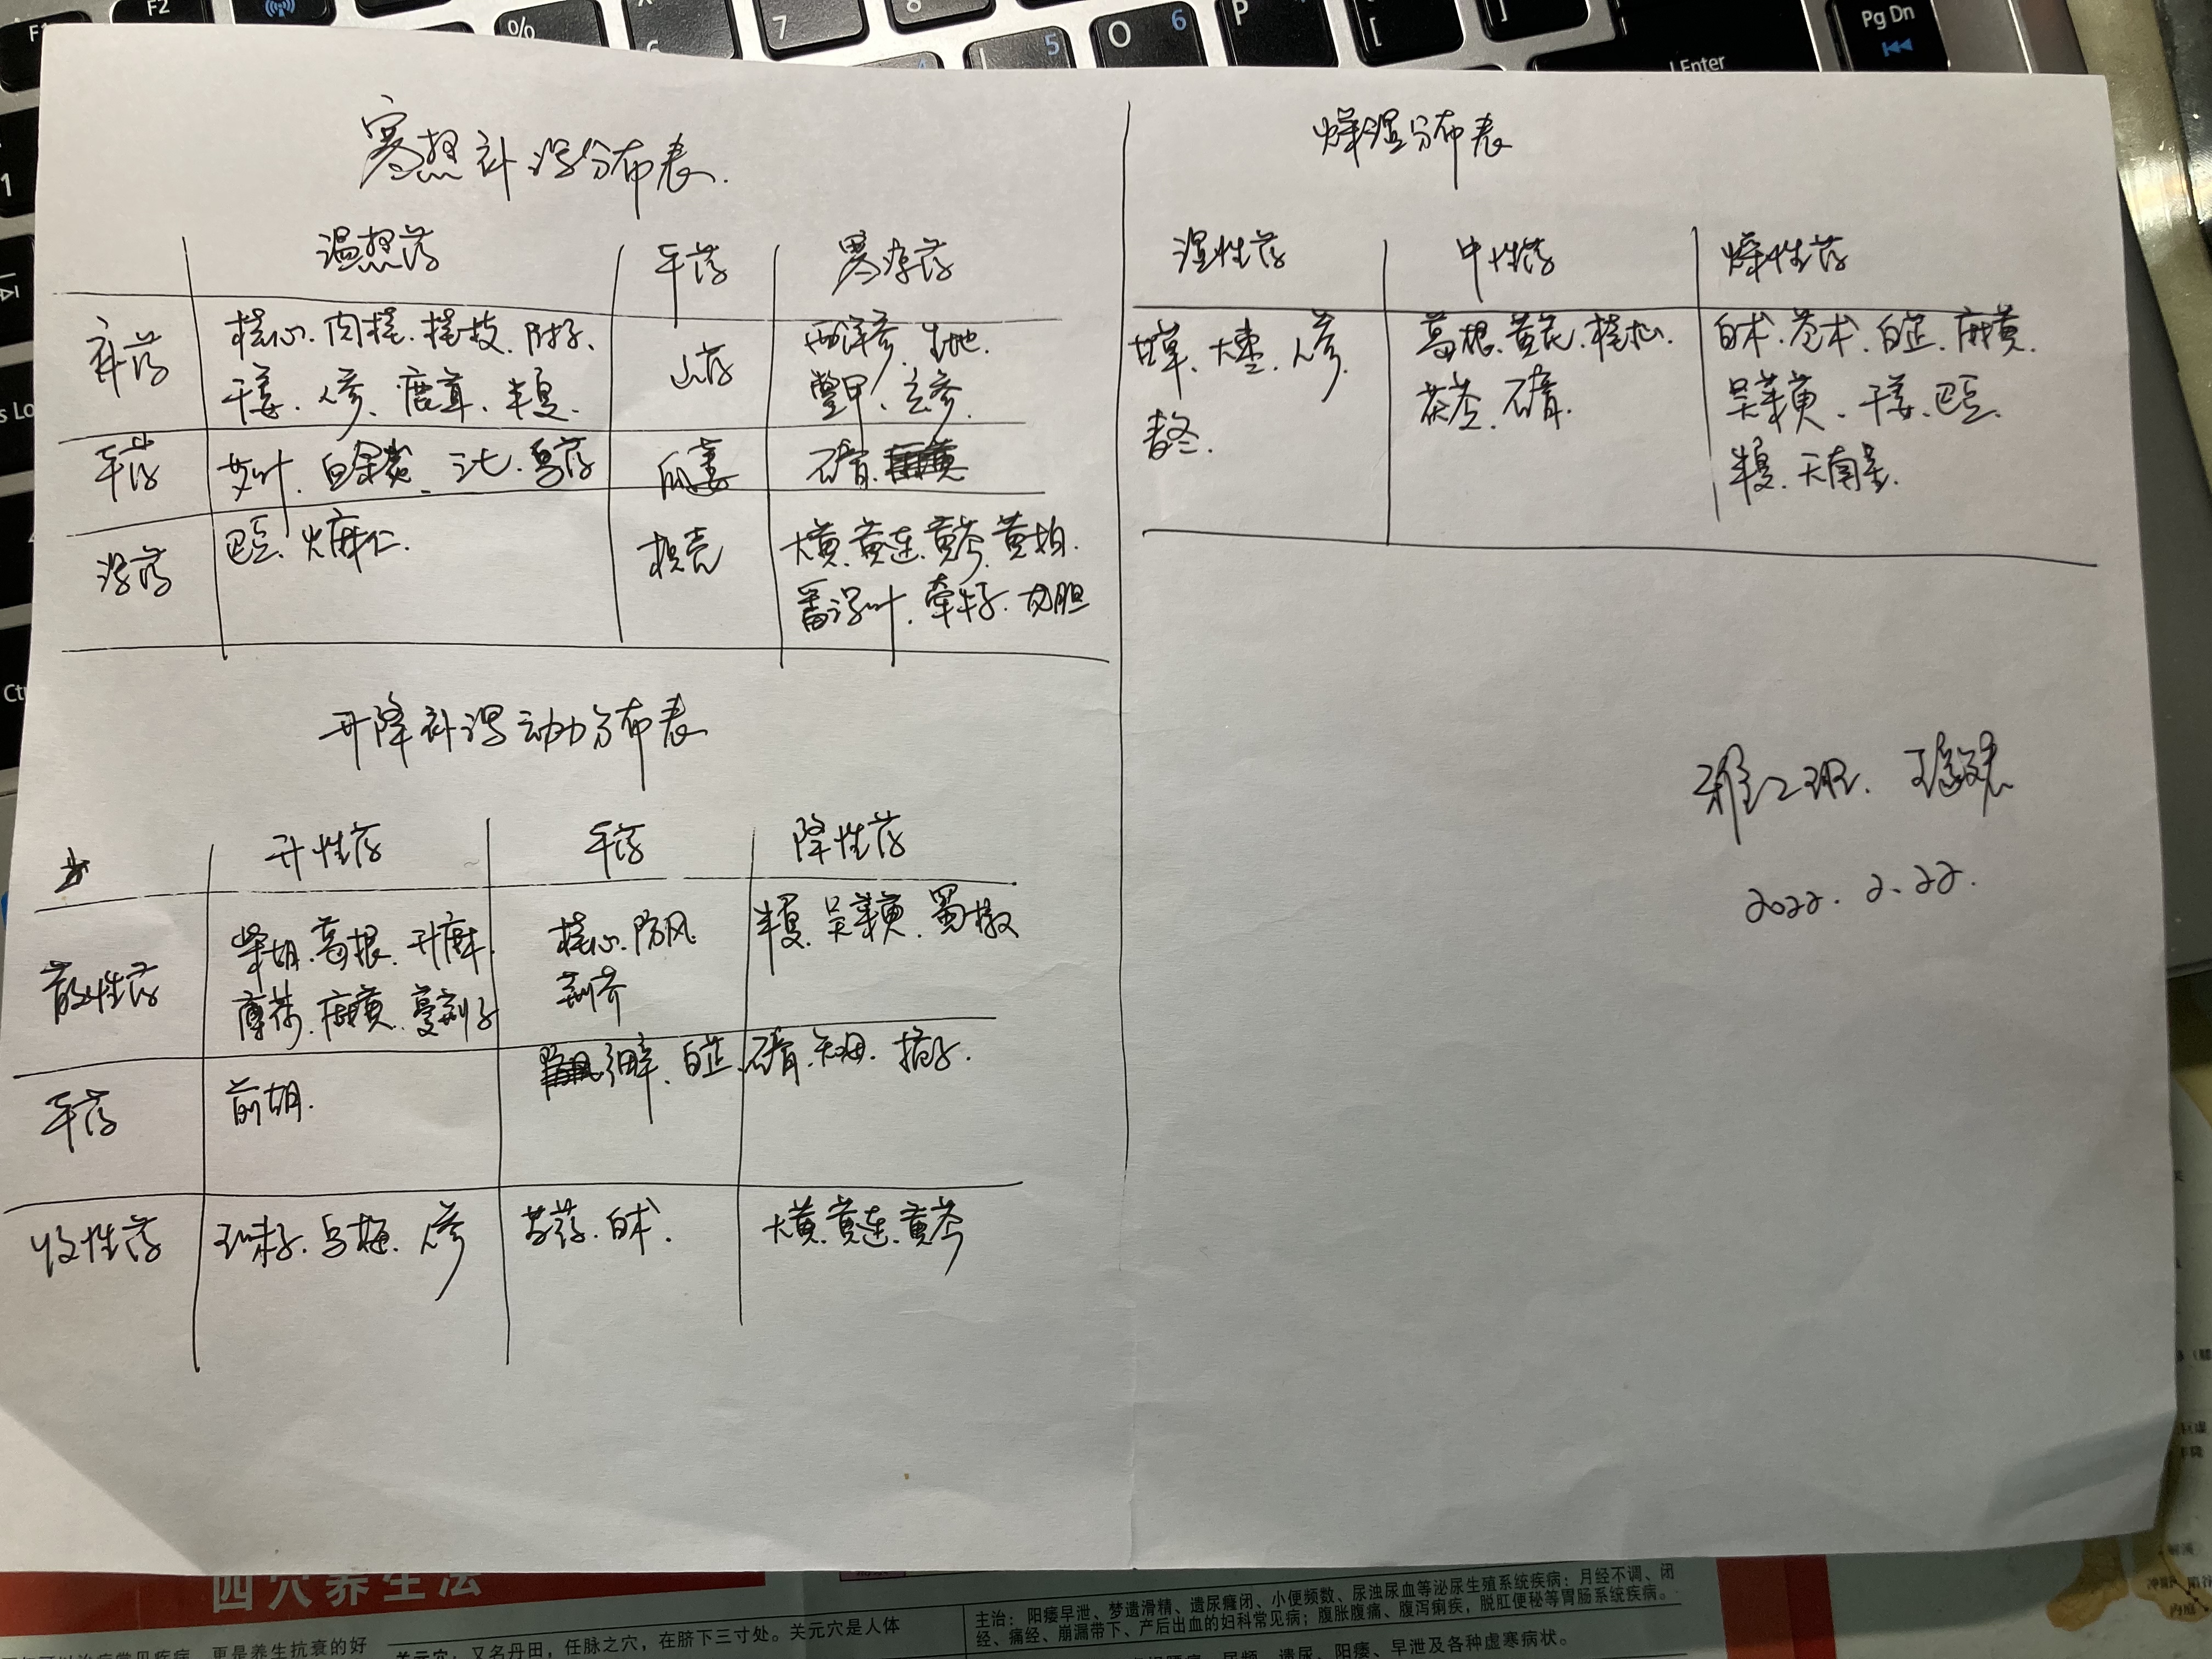 寒热补泻分布表.
温热药 平药 寒凉药
补药 桂心.肉桂.桂枝.附子、 山药 西洋参.生地.
干姜.人参、鹿茸.半夏. 鳖甲.玄参.
平药 艾叶.白 三七.乌药 瓜蒌 石膏.
泻药 巴豆、火麻仁. 枳壳 大黄.黄连.黄芩.黄柏.
番泻叶.牵牛子.龙胆
升降补泻动力分布表
升性药 平药 降性药
散性药 柴胡.葛根.升麻. 桂心.防风 半夏.吴茱萸.蜀椒
薄荷.麻黄.蔓荆子 荆芥
平药 前胡. 细辛.白芷. 石膏.知母.栀子.
收性药 五味子.乌梅.人参 芍药.白术. 大黄.黄连.黄芩
燥湿分布表
湿性药 中性药 燥性药
甘草.大枣.人参. 葛根.黄芪.桂心. 白术.苍术.白芷.麻黄.
麦冬. 茯苓.石膏. 吴茱萸.干姜.巴豆.
半夏.天南星.
雅二班.
2022.2.22.
F2
%
7
5
O 6
P
[
]
Enter
Pg Dn
1
四穴养生法
更是养生抗衰的好
关元穴，又名丹田，任脉之穴，在脐下三寸处。关元穴是人体
主治：阳痿早泄、梦遗滑精、遗尿癃闭、小便频数、尿浊尿血等泌尿生殖系统疾病；月经不调、闭
经、痛经、崩漏带下、产后出血的妇科常见病；腹胀腹痛、腹泻痢疾，脱肛便秘等胃肠系统疾病。
遗尿、阳痿、早泄及各种虚寒病状。